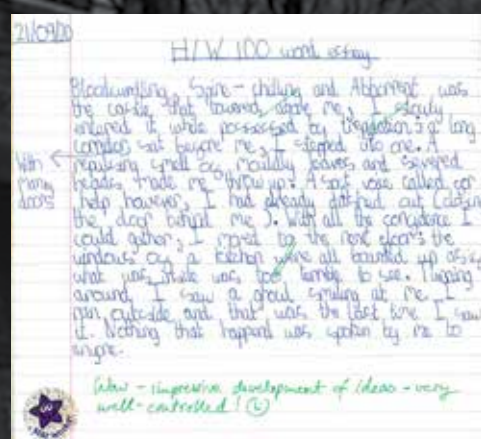 21/09/20
H/W 100 word essay
Bloodcurdling, Spine-chilling and Abhorrent was
the castle that towered above me, I slowly
entered it while possessed by trepidation; a long
corridors sat before me, I stepped into one. A
With many doors
repulsing smell of mouldy leaves and severed
heads, made me throw up. A soft voice called for
help however, I had already dashed out (closing
the door behind me). With all the confidence I
could gather, I moved to the next doors the
windows of a kitchen were all boarded up as if
what was inside was too terrible to see. Turning
around, I saw a ghoul smiling at me. I
ran outside and that was the last time I saw
it. Nothing that happened was spoken by me to
anyone.
Wow - impressive development of ideas - very
well-controlled!